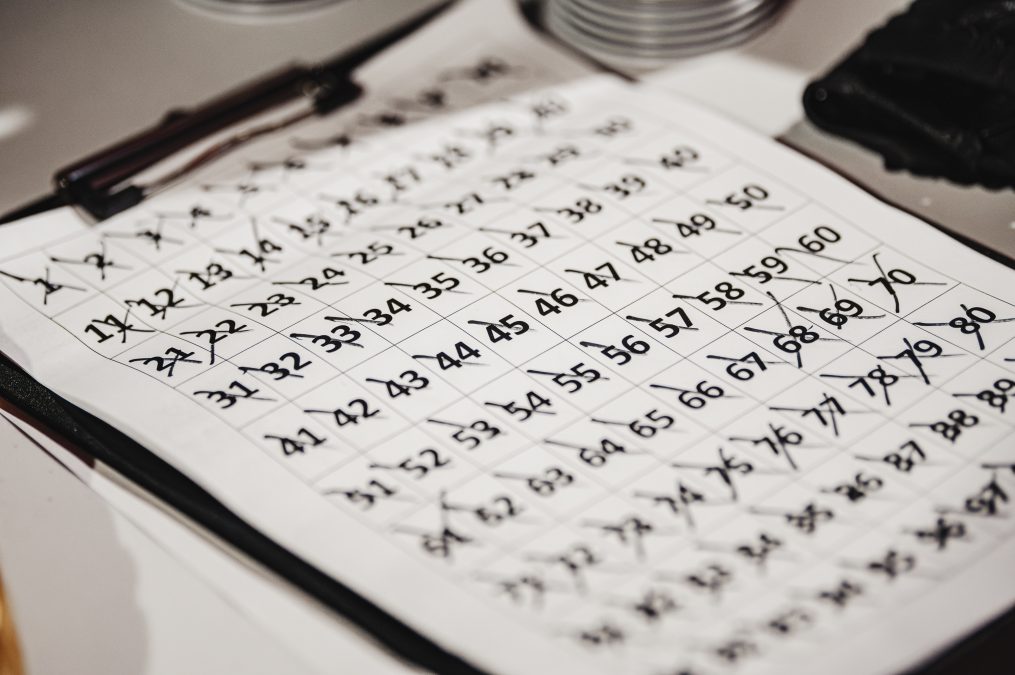 1 2 3 4 5 6
11 12 13 14 15 16 17 18 19 20
21 22 23 24 25 26 27 28 29 30
31 32 33 34 35 36 37 38 39 40
41 42 43 44 45 46 47 48 49 50
51 52 53 54 55 56 57 58 59 60
61 62 63 64 65 66 67 68 69 70
71 72 73 74 75 76 77 78 79 80
81 82 83 84 85 86 87 88 89
93 94 95 96 97